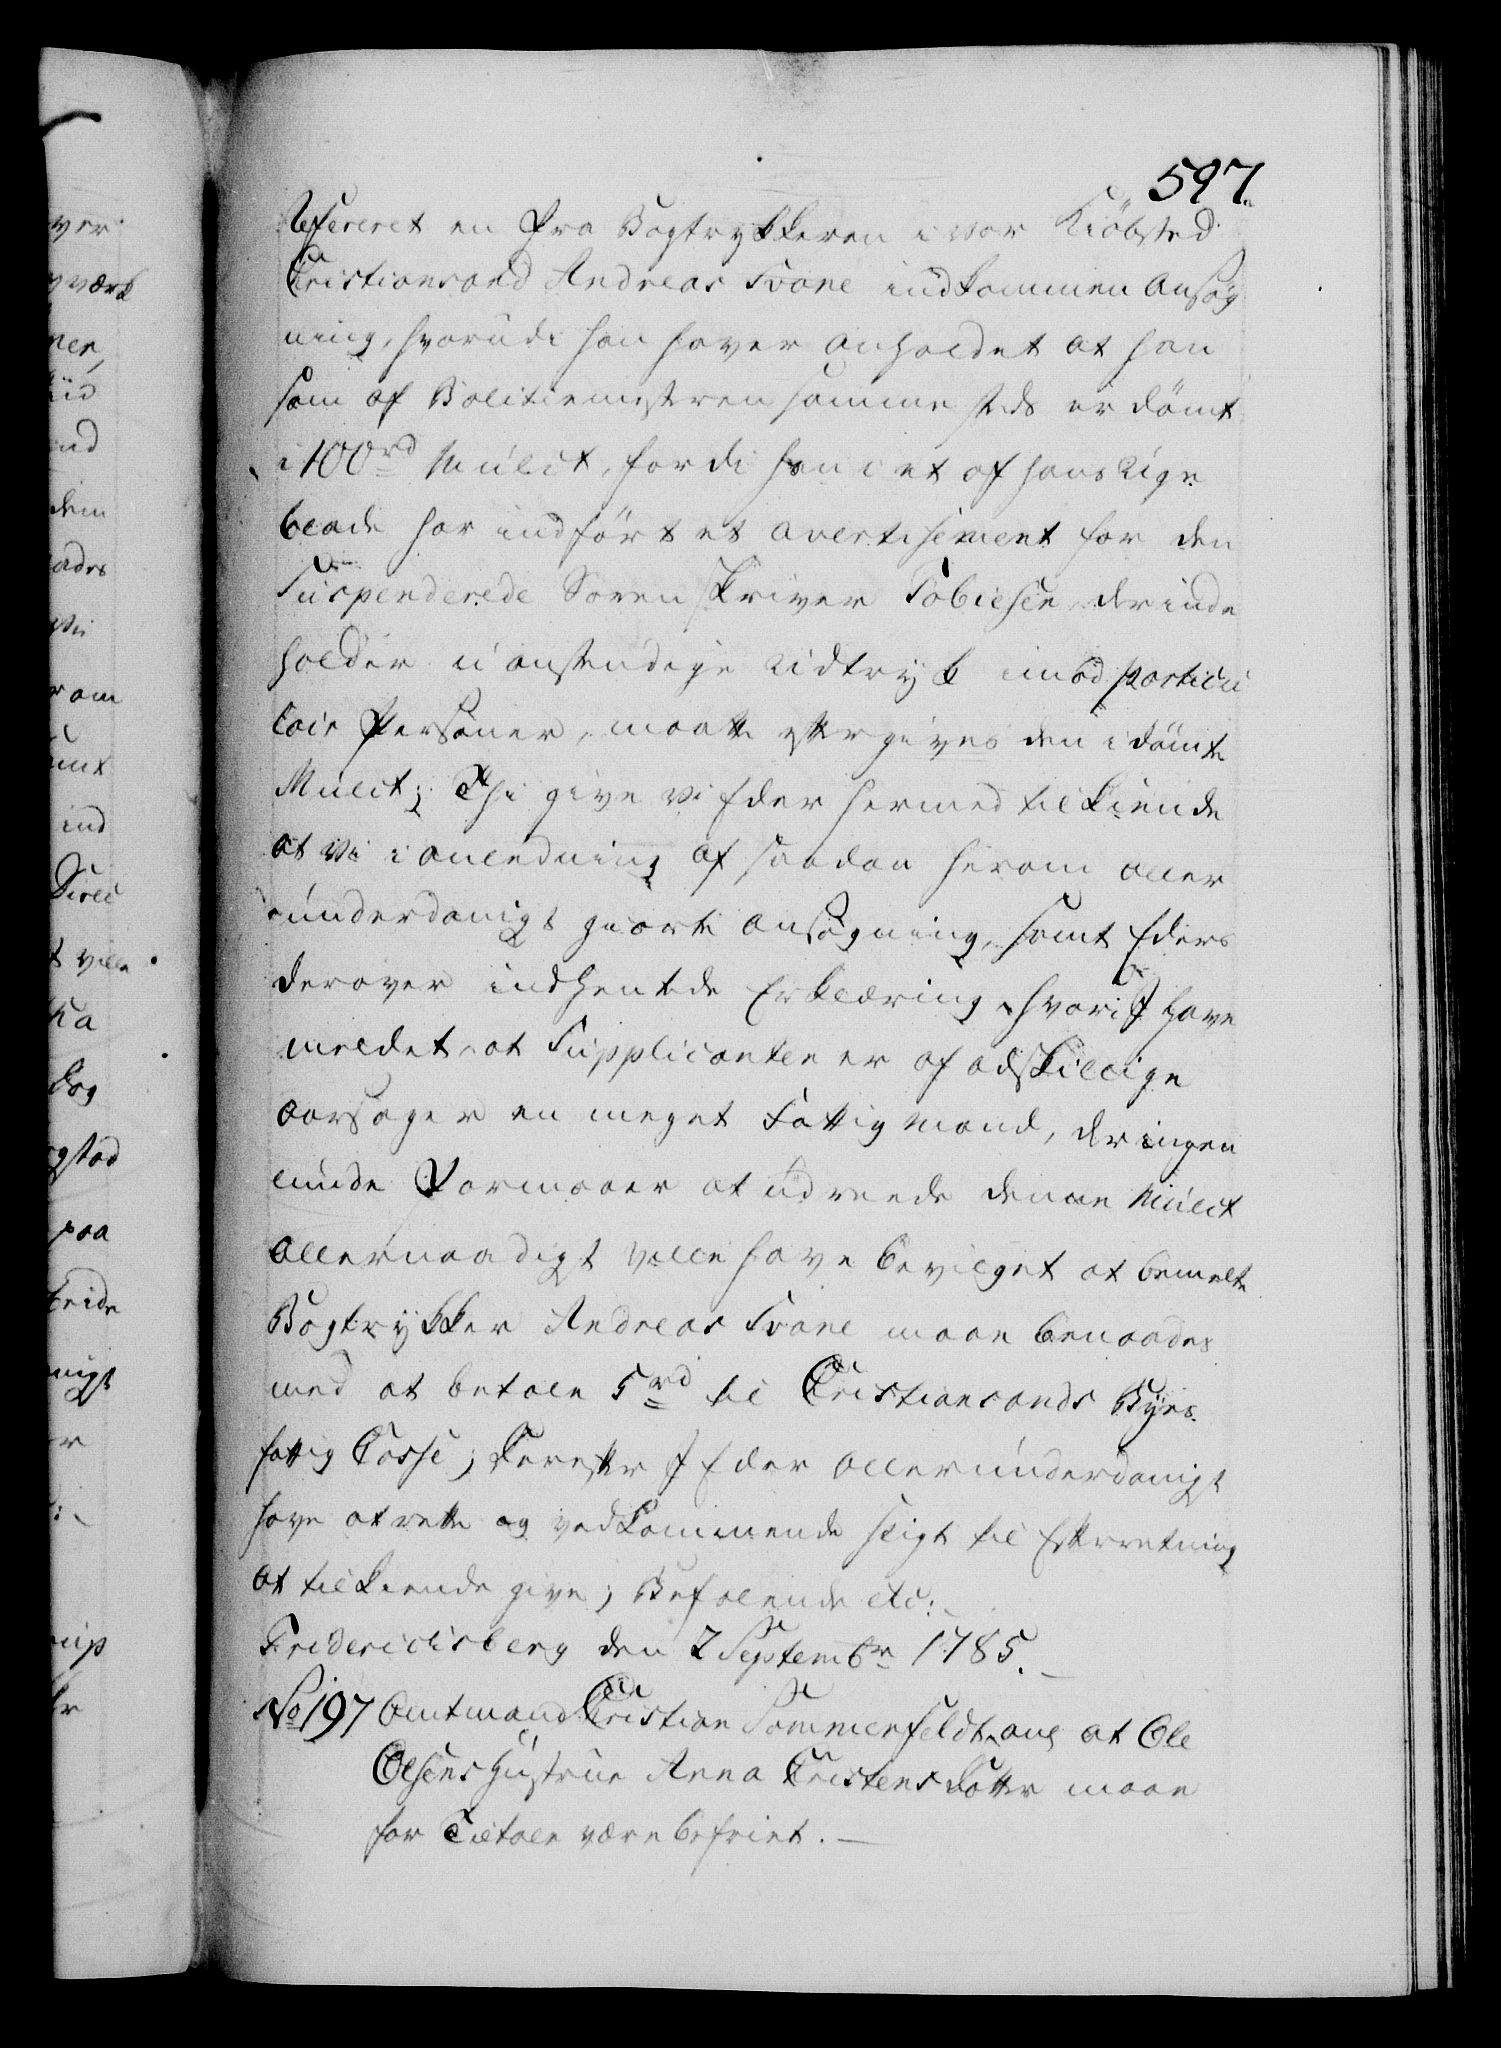 597.
Refereret en fra Bogtrykkeren i vor Kiöbsted
Christiansand Andreas Svane indkommen Ansøg
ning, hvorudi han haver anholdet at han
som af Politiemesteren sammesteds er dömt
i 100 rd Mulct, fordi han i et af hans Uge
blade har indfört et avertisement for den
Suspenderede Sorenskriver Tobiesen, der inde
holder uanstændige Udtryk imod particu
laire Personer, maatte eftergives den idömte
Mulct; Thi give vi Eder hermed tilkiende
at vi i anledning af saadan herom aller
underdanigst giorte Ansøgning, samt Eders
derover indhentede Erklæring, hvori I have
meldet, at Supplicanten er af adskillige
Aarsager en meget fattig Mand, der ingen
lunde formaaer at udreede denne Mulct
allernaadigst ville have bevilget at bemelte
Bogtrykker Andreas Svane maae benaades
med at betale 5 rd til Christiansands Byes
fattig Casse; Derefter I Eder allerunderdanigst
have at rette og vedkommende sligt til Efterretning
at tilkiende give; Befalende etc:
Friderichsberg den 2 Septembr 1785.
No 197 Amtmand Christian Sommerfeldt, ang at Ole
Olsens Hustrue Anna Christensdatter maae
for Tiltale være befriet.
ver
værk
mer,
iid
nd
dem
ades
vi
r om
amt
ind
Direc
t ville
ka
dog
gstad
paa
nigst
er